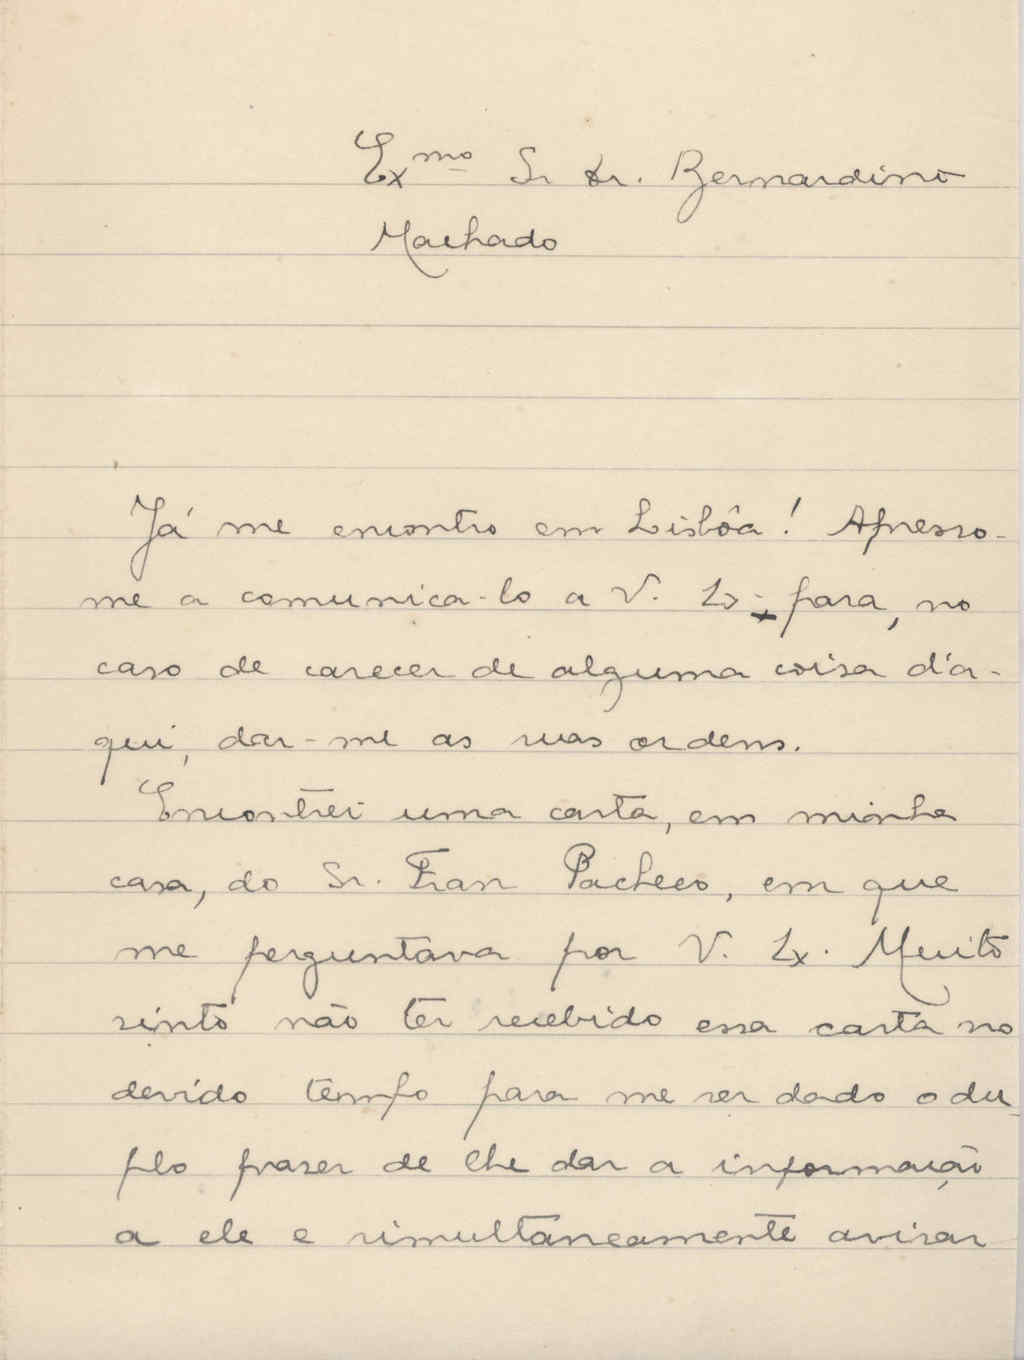 Exmo Sr Dr. Bernardino
Machado
Já me encontro em Lisbôa! Apresso-
me a comunica-lo a V. Ex. para, no
caso de carecer de alguma coisa d'a-
qui, dar-me as suas ordens.
Encontrei uma carta, em minha
casa, do Sr. Fran Pacheco, em que
me perguntava por V. Ex. Muito
sinto não ter recebido essa carta no
devido tempo para me ser dado o du-
plo prazer de lhe dar a informação
a ele e simultaneamente avisar